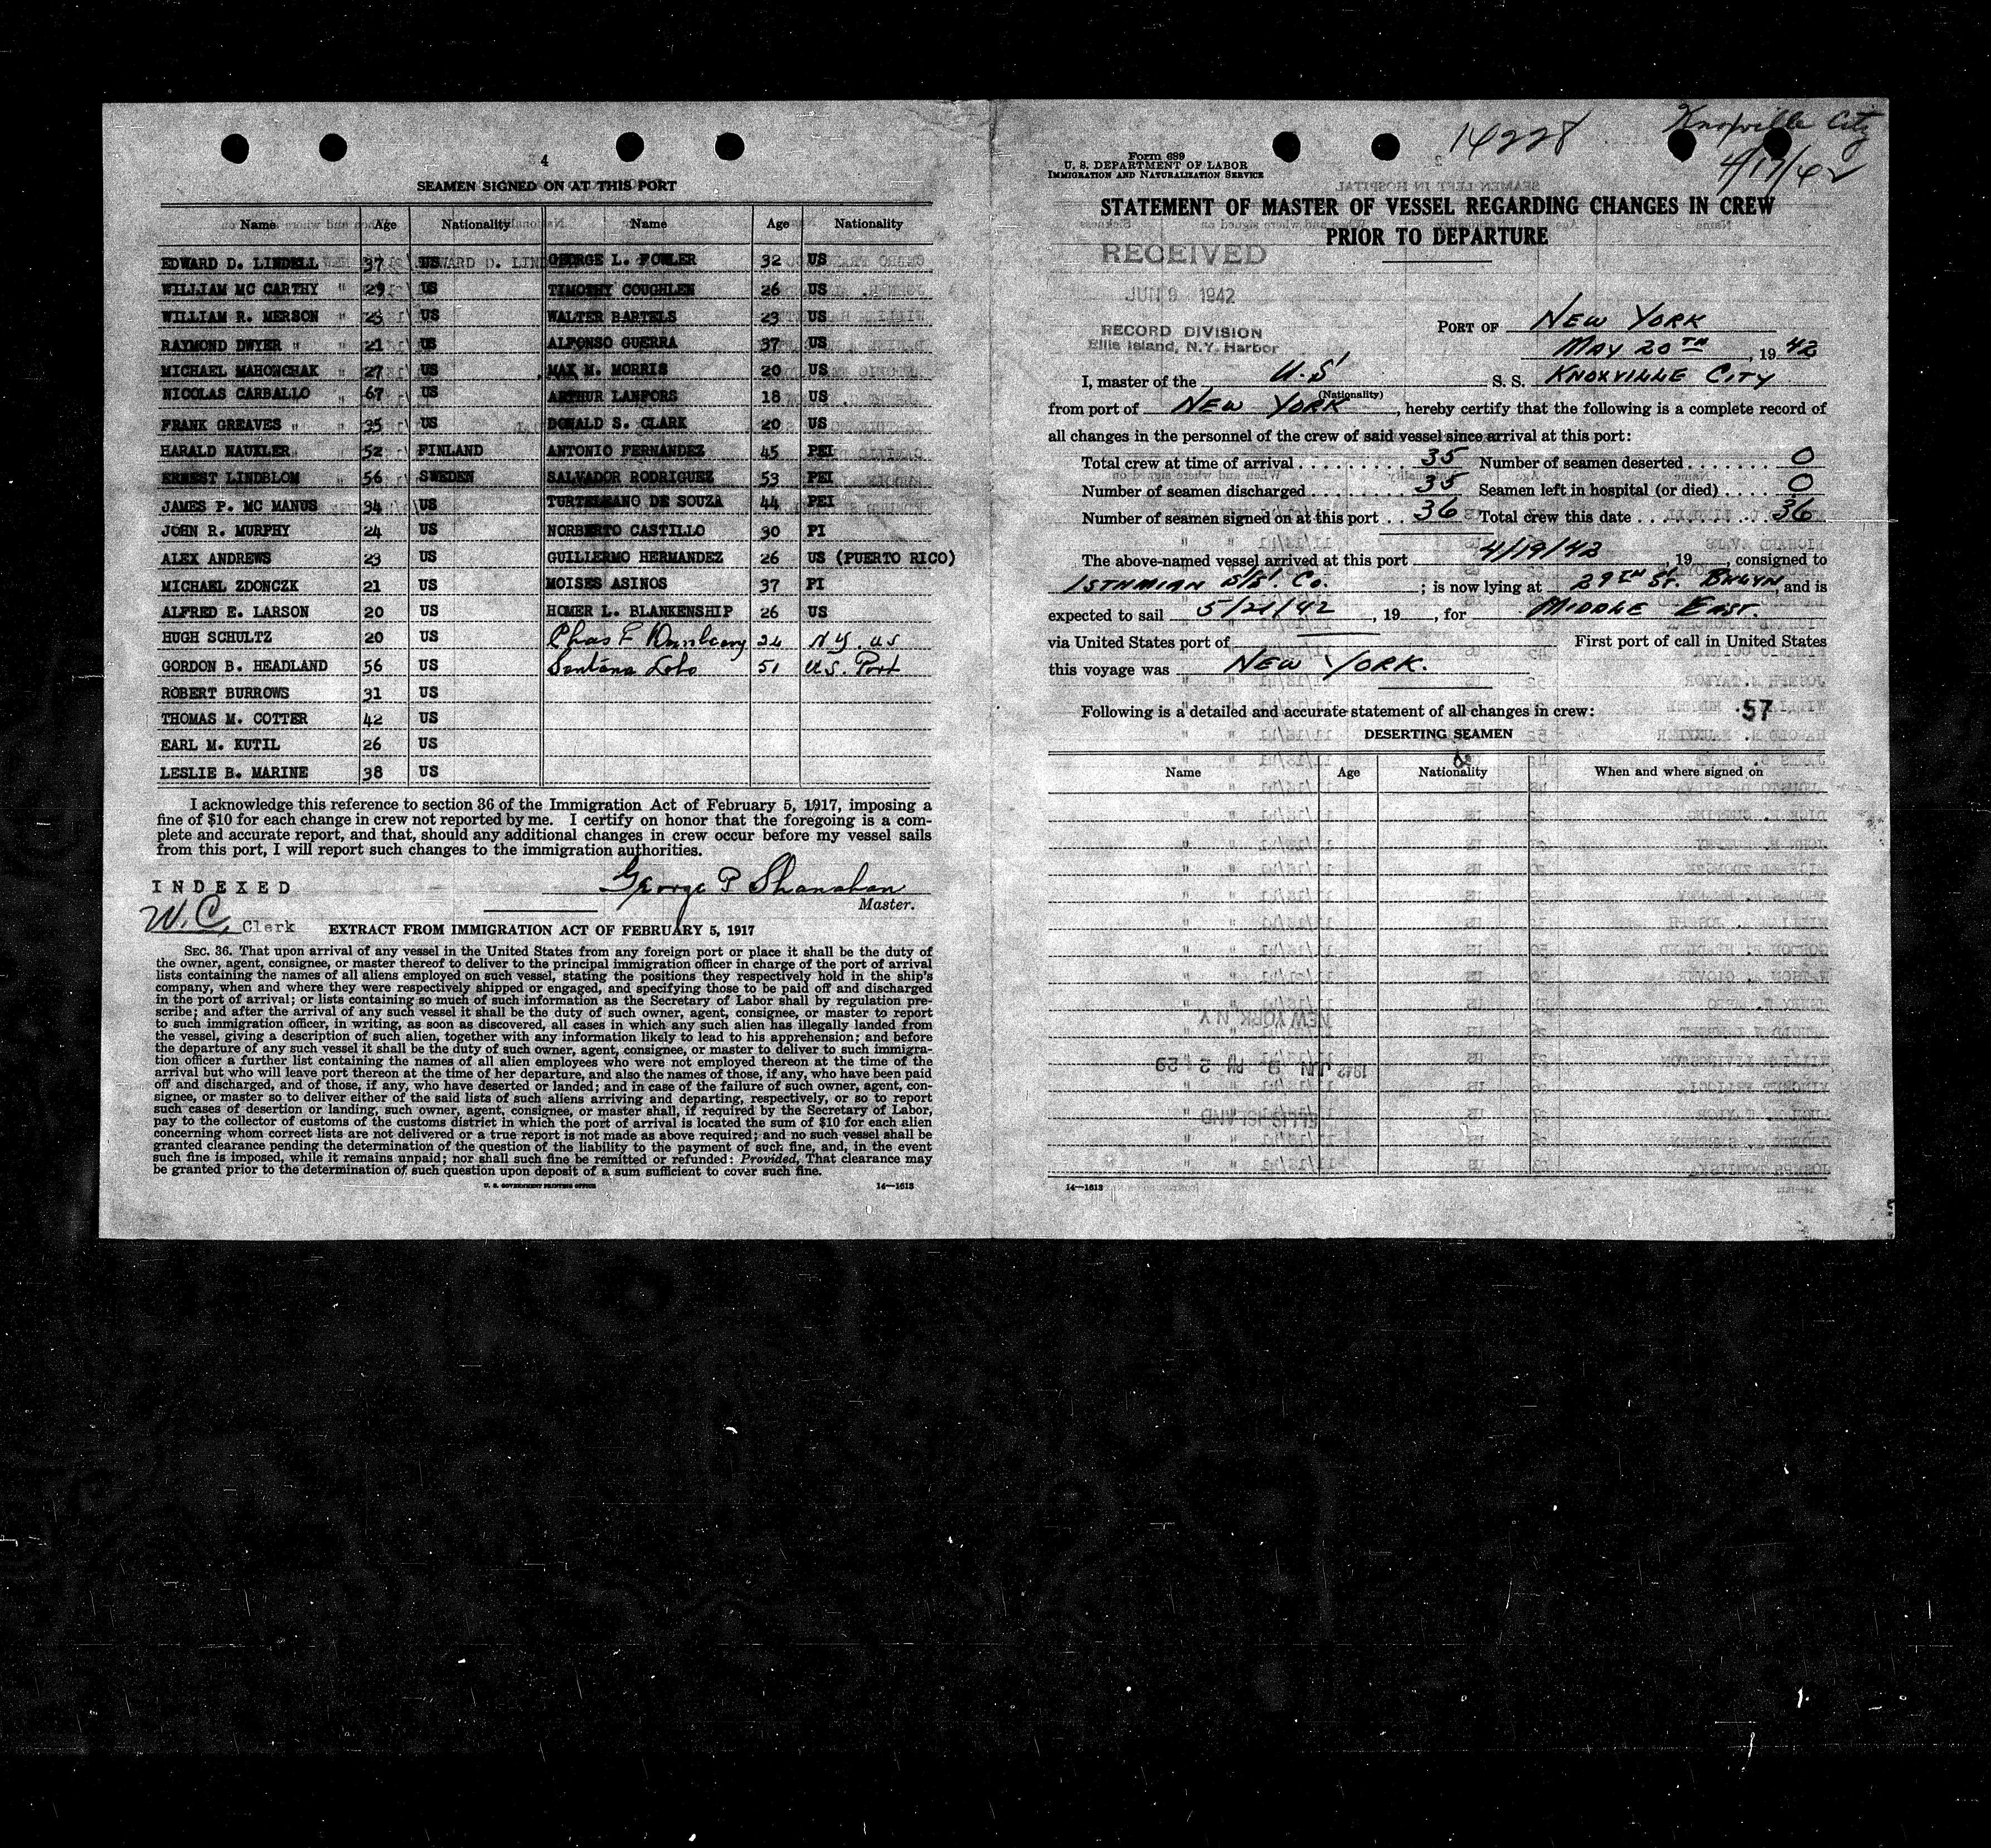 4
SEAMEN SIGNED ON AT THIS PORT
Name Age Nationality Name Age Nationality
EDWARD D. LINDELL 37 US GEORGE L. FOWLER 32 US
WILLIAM MC CARTHY " 29 US TIMOTHY COUGHLEN 26 US
WILLIAM R. MERSON " US WALTER BARTELS 23 US
RAYMOND DWYER " " 21 US ALFONSO GUERRA 37 US
MICHAEL MAHONCHAK " 27 US MAX M. MORRIS 20 US
NICOLAS CARBALLO " 67 US ARTHUR LANFORS 18 US
FRANK GREAVES " " 35 US DONALD S. CLARK 20 US
HARALD NAUKLER " 52 FINLAND ANTONIO FERNANDEZ 45 PEI
ERNEST LINDBLOM " 56 SWEDEN SALVADOR RODRIGUEZ 53 PEI
JAMES P. MC MANUS 34 US TURTELEANO DE SOUZA 44 PEI
JOHN R. MURPHY 24 US NORBERTO CASTILLO 30 PI
ALEX ANDREWS 23 US GUILLERMO HERMANDEZ 26 US (PUERTO RICO)
MICHAEL ZDONCZK 21 US MOISES ASINOS 37 PI
ALFRED E. LARSON 20 US HOMER L. BLANKENSHIP 26 US
HUGH SCHULTZ 20 US Chas F 24 N.Y. US
GORDON B. HEADLAND 56 US Santana Lobo 51 U.S. Port
ROBERT BURROWS 31 US
THOMAS M. COTTER 42 US
EARL M. KUTIL 26 US
LESLIE B. MARINE 38 US
I acknowledge this reference to section 36 of the Immigration Act of February 5, 1917, imposing a
fine of $10 for each change in crew not reported by me. I certify on honor that the foregoing is a com-
plete and accurate report, and that, should any additional changes in crew occur before my vessel sails
from this port, I will report such changes to the immigration authorities.
INDEXED George P Shanahan
Master.
W.C. Clerk EXTRACT FROM IMMIGRATION ACT OF FEBRUARY 5, 1917
SEC. 36. That upon arrival of any vessel in the United States from any foreign port or place it shall be the duty of
the owner, agent, consignee, or master thereof to deliver to the principal immigration officer in charge of the port of arrival
lists containing the names of all aliens employed on such vessel, stating the positions they respectively hold in the ship's
company, when and where they were respectively shipped or engaged, and specifying those to be paid off and discharged
in the port of arrival; or lists containing so much of such information as the Secretary of Labor shall by regulation pre-
scribe; and after the arrival of any such vessel it shall be the duty of such owner, agent, consignee, or master to report
to such immigration officer, in writing, as soon as discovered, all cases in which any such alien has illegally landed from
the vessel, giving a description of such alien, together with any information likely to lead to his apprehension; and before
the departure of any such vessel it shall be the duty of such owner, agent, consignee, or master to deliver to such immigra-
tion officer a further list containing the names of all alien employees who were not employed thereon at the time of the
arrival but who will leave port thereon at the time of her departure, and also the names of those, if any, who have been paid
off and discharged, and of those, if any, who have deserted or landed; and in case of the failure of such owner, agent, con-
signee, or master so to deliver either of the said lists of such aliens arriving and departing, respectively, or so to report
such cases of desertion or landing, such owner, agent, consignee, or master shall, if required by the Secretary of Labor,
pay to the collector of customs of the customs district in which the port of arrival is located the sum of $10 for each alien
concerning whom correct lists are not delivered or a true report is not made as above required; and no such vessel shall be
granted clearance pending the determination of the question of the liability to the payment of such fine, and, in the event
such fine is imposed, while it remains unpaid; nor shall such fine be remitted or refunded: Provided, That clearance may
be granted prior to the determination of such question upon deposit of a sum sufficient to cover such fine.
U. S. GOVERNMENT PRINTING OFFICE 14—1613
14228 Knoxville City
4/19/42
Form 689
U. S. DEPARTMENT OF LABOR
IMMIGRATION AND NATURALIZATION SERVICE
STATEMENT OF MASTER OF VESSEL REGARDING CHANGES IN CREW
PRIOR TO DEPARTURE
RECEIVED
JUN 9 1942
RECORD DIVISION
Ellis Island, N.Y. Harbor
PORT OF NEW YORK
MAY 20TH, 1942
I, master of the U.S. S. S. KNOXVILLE CITY
(Nationality)
from port of NEW YORK, hereby certify that the following is a complete record of
all changes in the personnel of the crew of said vessel since arrival at this port:
Total crew at time of arrival 35 Number of seamen deserted 0
Number of seamen discharged 35 Seamen left in hospital (or died) 0
Number of seamen signed on at this port 36 Total crew this date 36
The above-named vessel arrived at this port 4/19/42, 19, consigned to
ISTHMIAN S/S. Co.; is now lying at 29TH ST. BKLYN, and is
expected to sail 5/21/42, 19, for MIDDLE EAST.
via United States port of First port of call in United States
this voyage was NEW YORK.
Following is a detailed and accurate statement of all changes in crew: 57
DESERTING SEAMEN
Name Age Nationality When and where signed on
14—1613